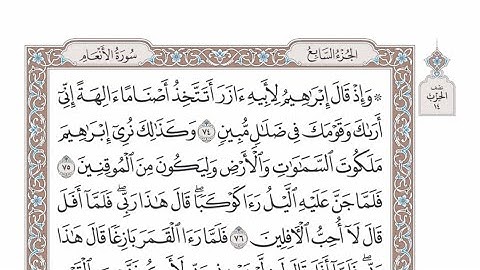 الجُزْءُ السَّابِعُ
سُورَةُ الأَنْعَامِ
نصف
الحزب
١٤
۞ وَإِذْ قَالَ إِبْرَٰهِيمُ لِأَبِيهِ ءَازَرَ أَتَتَّخِذُ أَصْنَامًا ءَالِهَةً إِنِّىٓ
أَرَىٰكَ وَقَوْمَكَ فِى ضَلَٰلٍ مُّبِينٍ ٧٤ وَكَذَٰلِكَ نُرِىٓ إِبْرَٰهِيمَ
مَلَكُوتَ ٱلسَّمَٰوَٰتِ وَٱلْأَرْضِ وَلِيَكُونَ مِنَ ٱلْمُوقِنِينَ ٧٥
فَلَمَّا جَنَّ عَلَيْهِ ٱلَّيْلُ رَءَا كَوْكَبًا ۖ قَالَ هَٰذَا رَبِّى ۖ فَلَمَّآ أَفَلَ
قَالَ لَآ أُحِبُّ ٱلْءَافِلِينَ ٧٦ فَلَمَّا رَءَا ٱلْقَمَرَ بَازِغًا قَالَ هَٰذَا